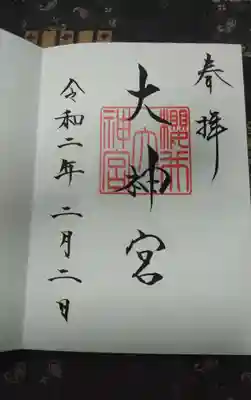 奉拝
大神宮
櫻木
大神宮
令和二年二月二日